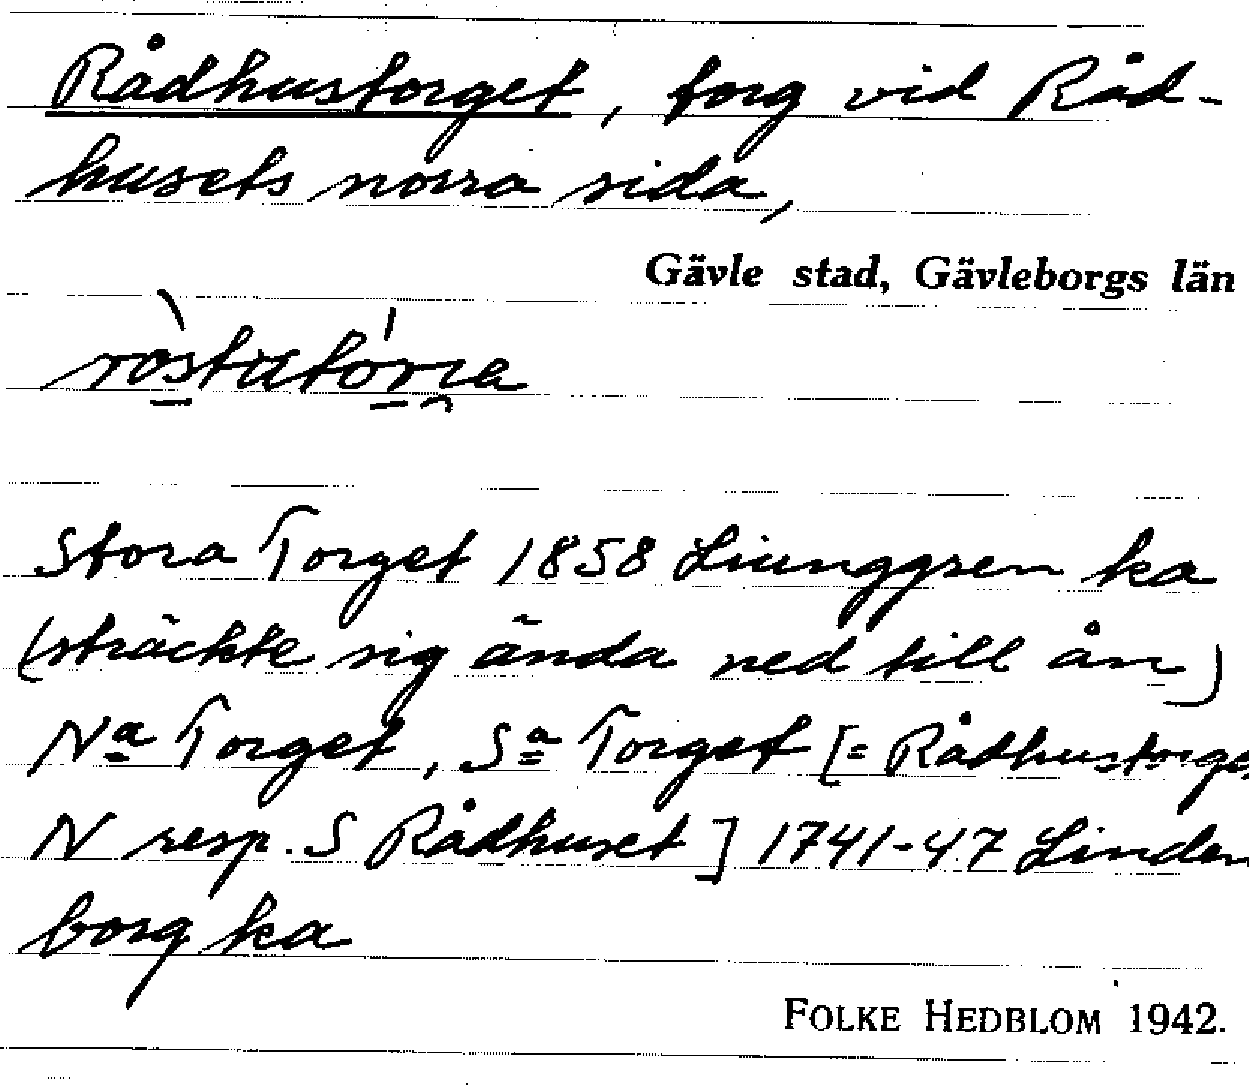 Rådhustorget, torg vid Råd-
husets norra sida,
Gävle stad, Gävleborgs län
Stora Torget 1858 Liunggren ka
(sträckte sig ända ned till ån)
Na Torget, Sa Torget [= Rådhustorge
N resp. S Rådhuset] 1741-47 Linden
borg ka
FOLKE HEDBLOM 1942.